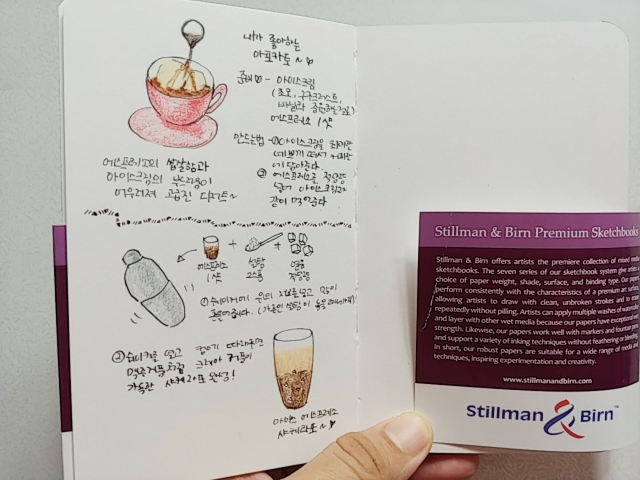 내가 좋아하는
아포카토 ~ ♡
준비♡ - 아이스크림
(초코, 쿠쿠크러스트,
바닐라
에스프레소 1샷
만드는법 - ① 아이스크림을
예쁘게 떠서
에 담아준다
② 에스프레소를 적당량
넣어 아이스크림과
같이 먹어준다
에스프레소의 쌉쌀함과
아이스크림의 부드러움이
어우러져 고급진 디저트~
에스프레소
1샷
+
설탕
2스푼
+
얼음
적당량
① 쉐이커에 위의 재료를 넣고 많이
흔들어준다. (가루인 설탕이 녹을
② 쉐이커를 열고 컵에 따라주면
맥주거품처럼 크레마 거품이
가득한 샤케라또 완성!
아이스 에스프레소
샤케라또 ~ ♥
Stillman & Birn Premium Sketchbooks
Stillman & Birn offers artists the premiere collection of mixed media
sketchbooks. The seven series of our sketchbook system give artists a
choice of paper weight, shade, surface, and binding type. Our papers
perform consistently with the characteristics of a premium art surface,
allowing artists to draw with clean, unbroken strokes and to erase
repeatedly without pilling. Artists can apply multiple washes of watercolor
and layer with other wet media because our papers have exceptional wet
strength. Likewise, our papers work well with markers and fountain pens
and support a variety of inking techniques without feathering or bleeding.
In short, our robust papers are suitable for a wide range of media and
techniques, inspiring experimentation and creativity.
www.stillmanandbirn.com
Stillman & Birn™